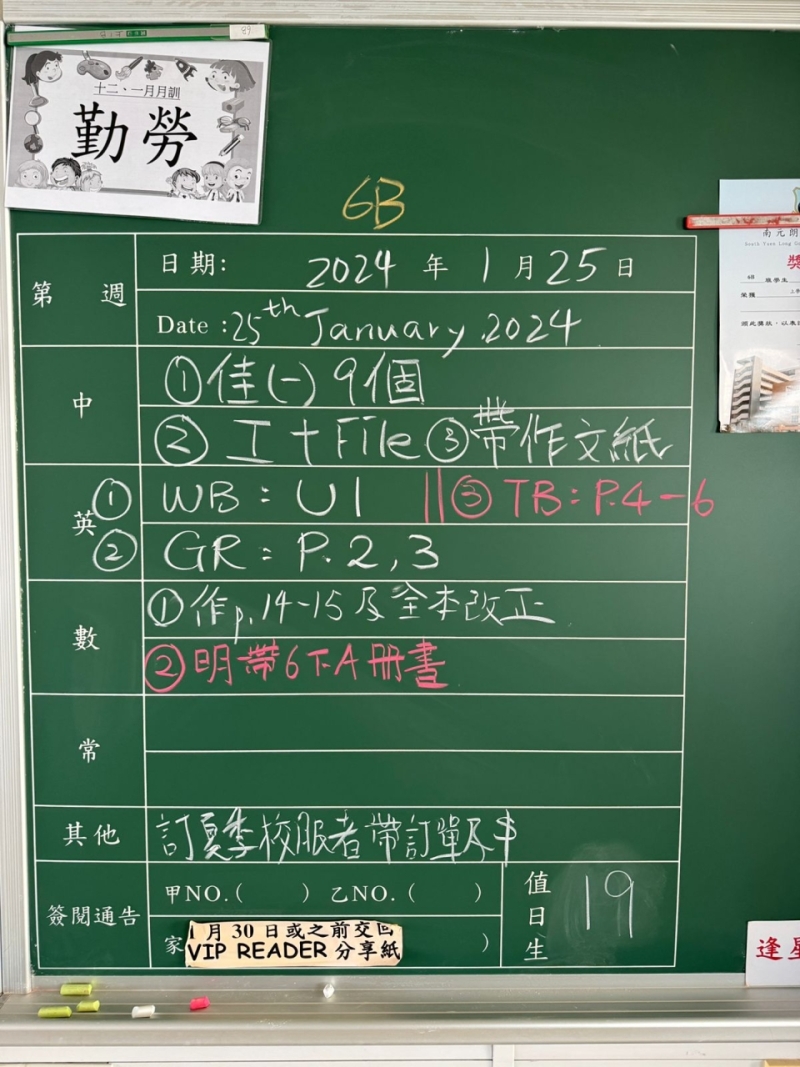 十二、一月月訓
勤勞
6B
第 週
日期: 2024 年 1 月 25 日
Date : 25th January, 2024
中
①佳(一) 9個
② 工 + File ③帶作文紙
英
① WB : U1 ③ TB : P.4-6
② GR : P. 2, 3
數
①作p.14-15及全本改正
②明帶6下A冊書
常
其他
訂夏季校服者帶訂單及$
簽閱通告
甲NO.( ) 乙NO.( )
家 )
1月30日或之前交回
VIP READER 分享紙
值日生
19
南元朗
South Yuen Long Go
獎
6B 班學生
榮獲
因此獎狀，以表
逢星